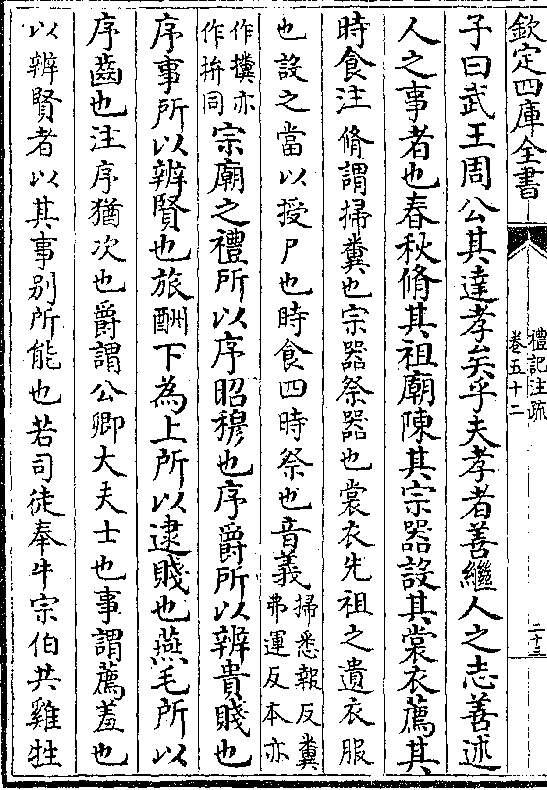 欽定四庫全書
禮記注疏
卷五十二
二十三
子曰武王周公其達孝矣乎夫孝者善繼人之志善述
人之事者也春秋脩其祖廟陳其宗器設其裳衣薦其
時食注脩謂掃糞也宗器祭器也裳衣先祖之遺衣服
也設之當以授尸也時食四時祭也音義掃悉報反糞
弗運反本亦
作㩁亦
作拚同
宗廟之禮所以序昭穆也序爵所以辨貴賤也
序事所以辨賢也旅酬下為上所以逮賤也燕毛所以
序齒也注序猶次也爵謂公卿大夫士也事謂薦羞也
以辨賢者以其事別所能也若司徒奉牛宗伯共雞牲